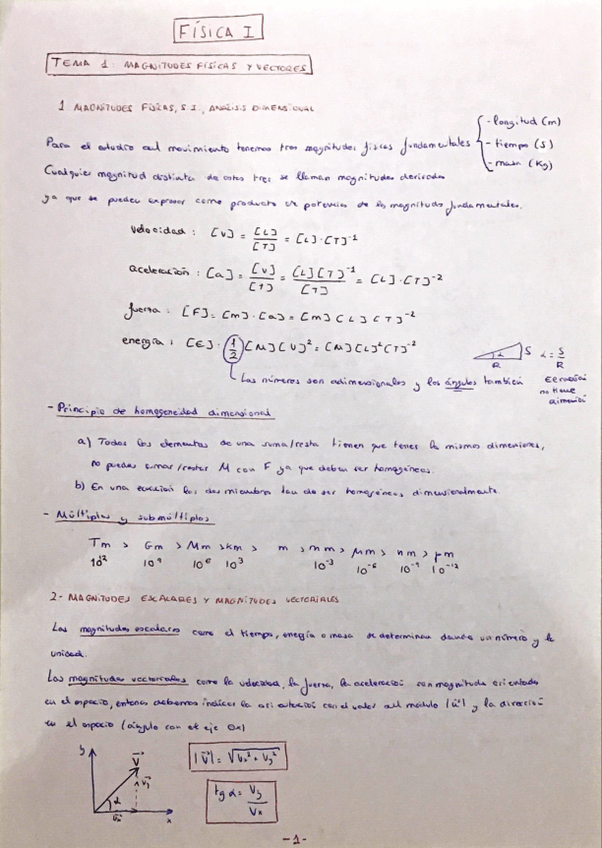 FÍSICA I
TEMA 1: MAGNITUDES FÍSICAS Y VECTORES
1 MAGNITUDES FÍSICAS, S.I., ANÁLISIS DIMENSIONAL
Para el estudio del movimiento tenemos tres magnitudes físicas fundamentales { - longitud (m)
- tiempo (s)
- masa (Kg)
Cualquier magnitud distinta de estas tres se llaman magnitudes derivadas
ya que se pueden expresar como producto de potencias de las magnitudes fundamentales.
velocidad: [v] = [L]/[T] = [L]·[T]⁻¹
aceleración: [a] = [v]/[t] = [L][T]⁻¹/[T] = [L]·[T]⁻²
fuerza: [F] = [m]·[a] = [m][L][T]⁻²
energía: [E]· 1/2 [M][V]² = [M][L]²[T]⁻²
Los números son adimensionales y los ángulos también
α R S α = S/R
no tiene
dimensión
- Principio de homogeneidad dimensional
a) Todos los elementos de una suma/resta tienen que tener las mismas dimensiones,
no puedes sumar/restar M con F ya que deben ser homogéneas.
b) En una ecuación los dos miembros han de ser homogéneos dimensionalmente.
- Múltiplos y submúltiplos
Tm > Gm > Mm > km > m > mm > μm > nm > pm
10¹² 10⁹ 10⁶ 10³ 10⁻³ 10⁻⁶ 10⁻⁹ 10⁻¹²
2- MAGNITUDES ESCALARES Y MAGNITUDES VECTORIALES
Las magnitudes escalares como el tiempo, energía o masa se determinan dando un número y la
unidad.
Las magnitudes vectoriales como la velocidad, la fuerza, la aceleración son magnitudes orientadas
en el espacio, entonces debemos indicar la orientación con el valor del módulo |v⃗| y la dirección
en el espacio (ángulo con el eje Ox)
y V⃗ v⃗y α v⃗x x
|v⃗| = √(vx² + vy²)
tg α = Vy/Vx
-1-